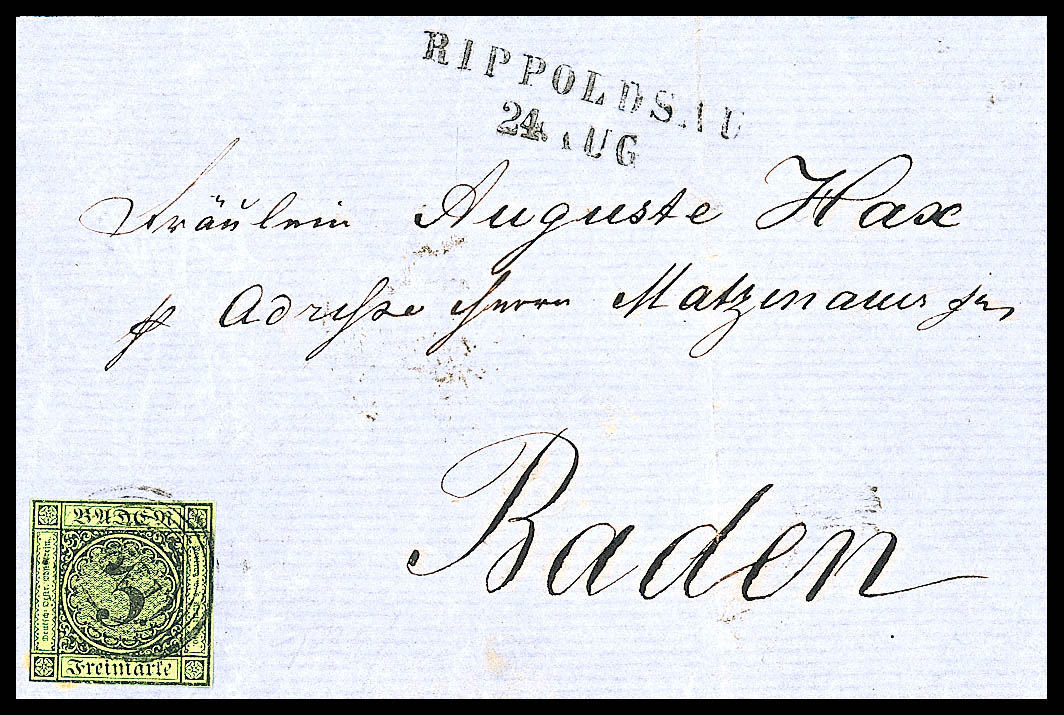 RIPPOLDSAU
24 AUG
Fräulein Auguste Hax
p Adresse Herrn Matzenauer jr,
Baden
BADEN
3
Freimarke